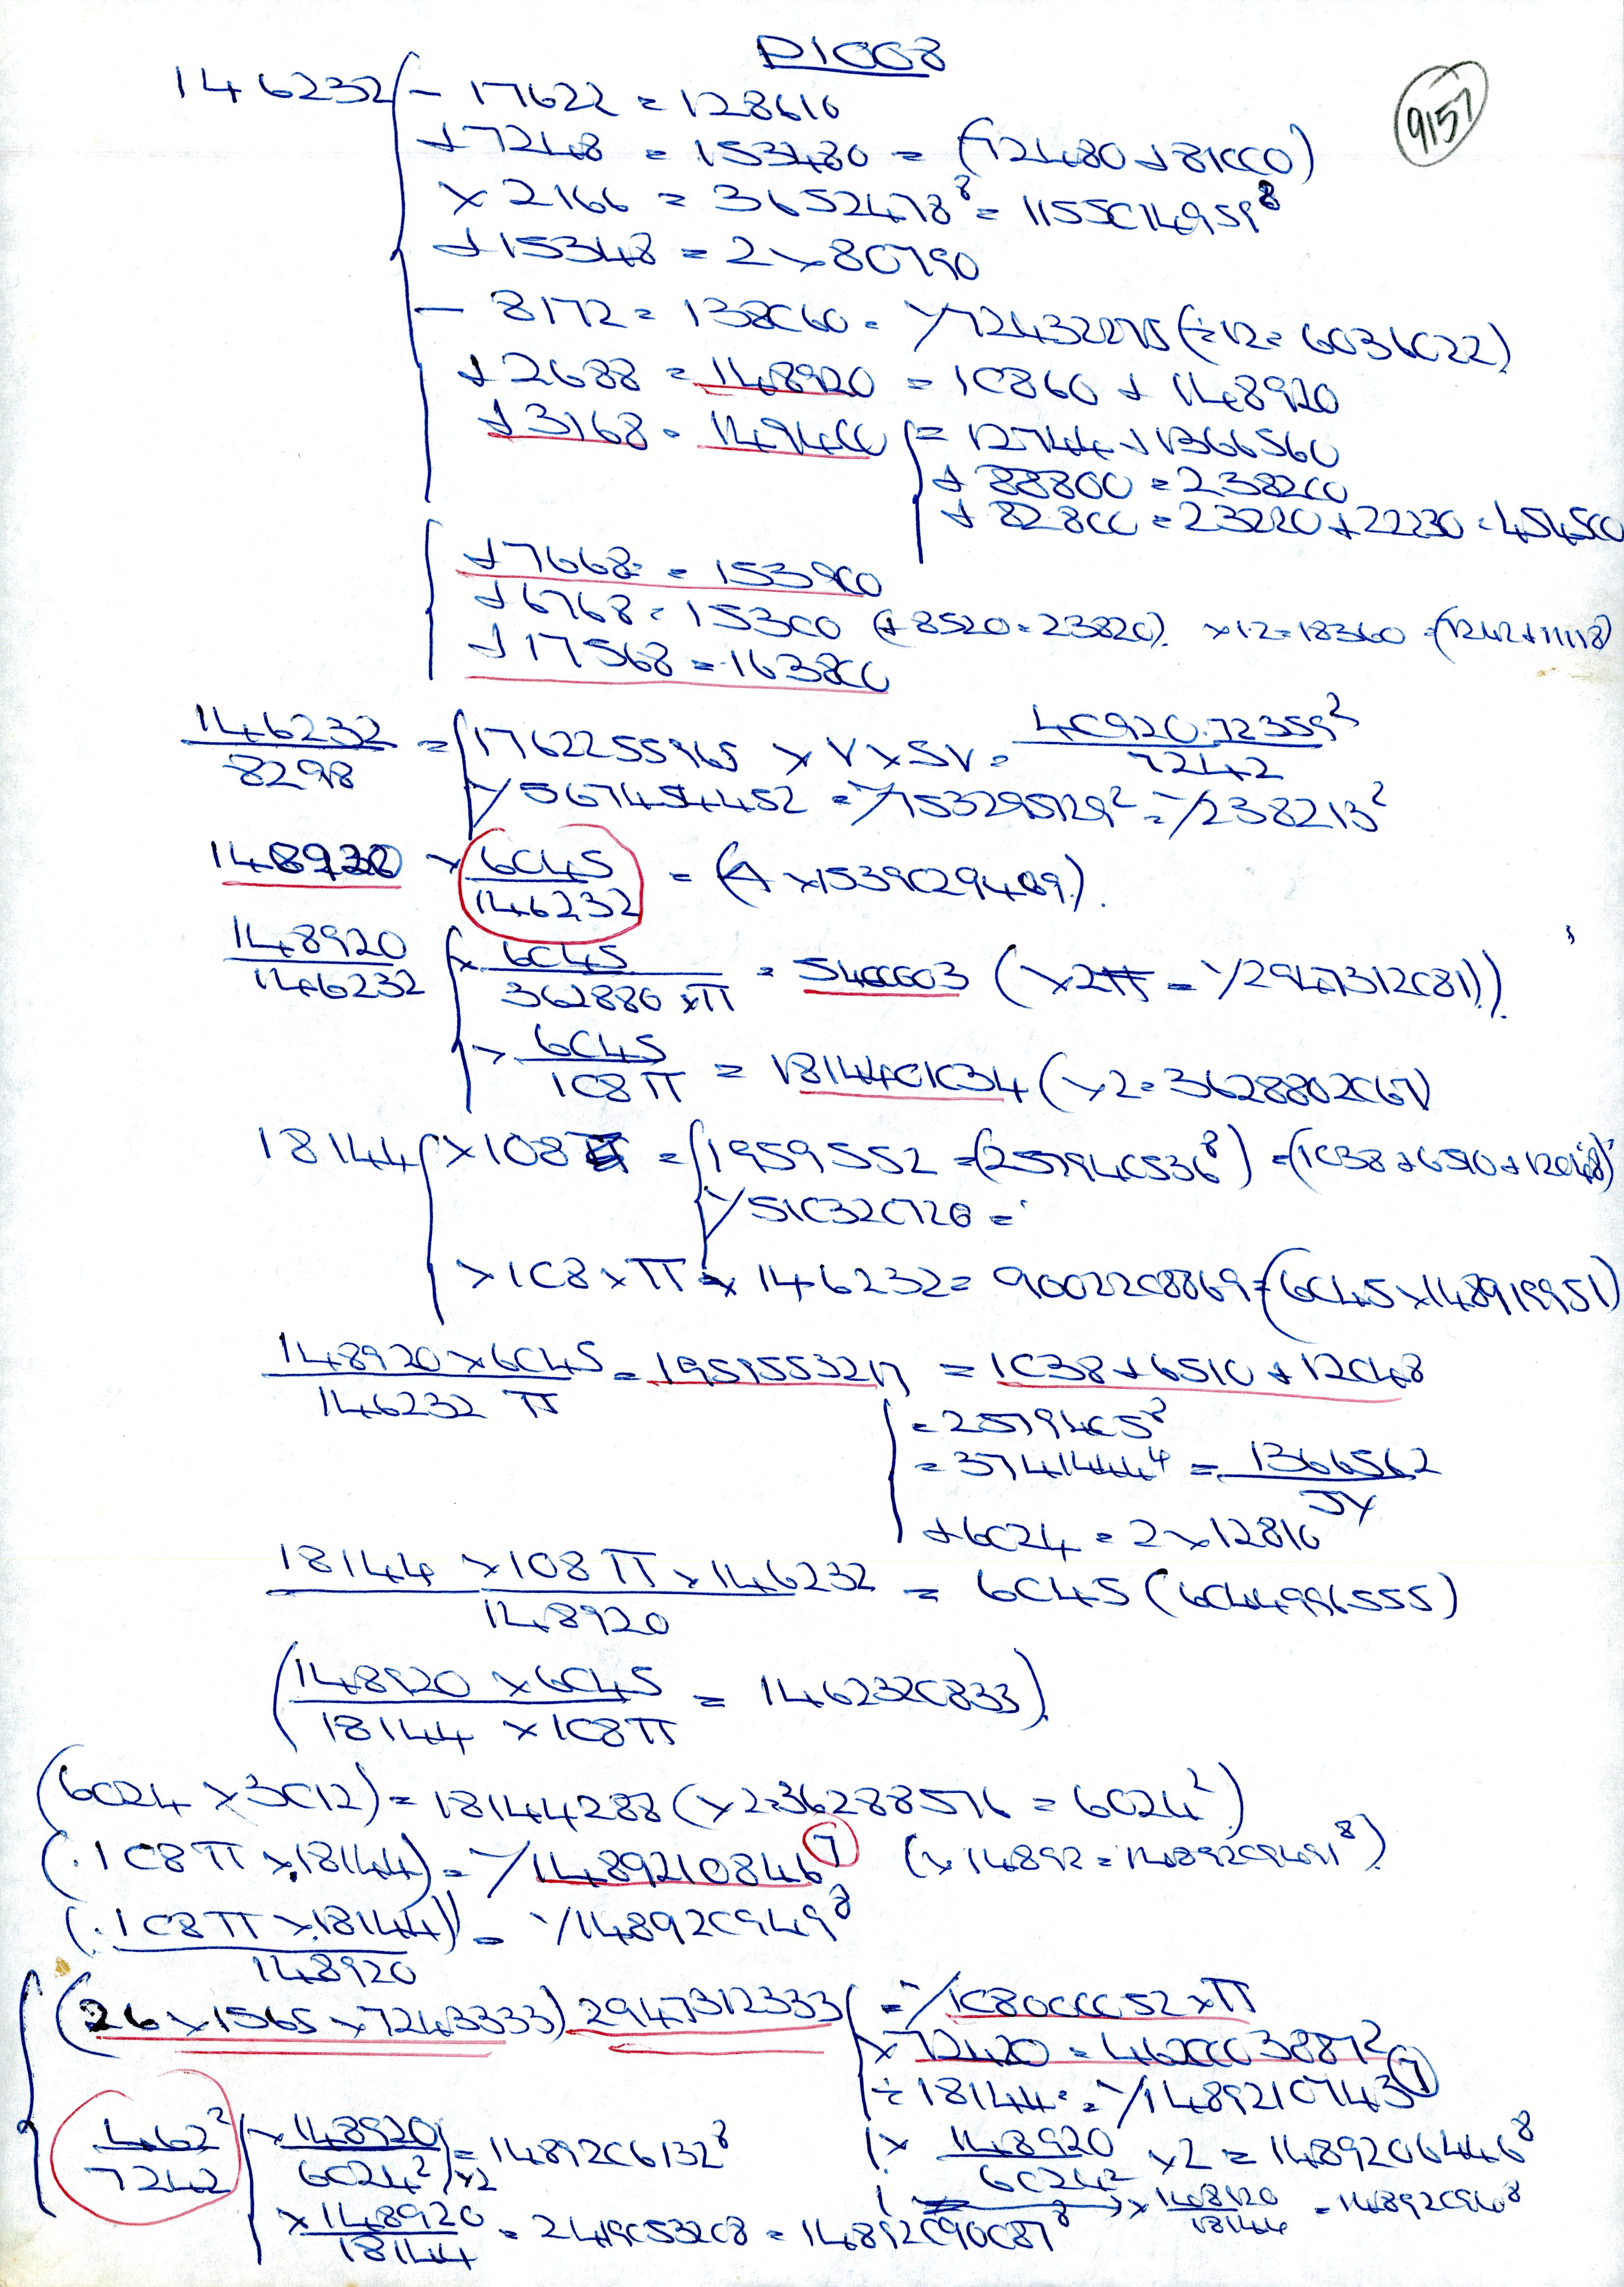 D1008
9157
146232 { - 17622 = 128610
+ 7248 = 153480 = (72480 + 81000)
× 2166 = 3652478⁸ = 1155014959⁸
+ 15348 = 2 × 80790
- 8172 = 138060 = √72432275 (÷12 = 6036022)
+ 2688 = 148920 = 10860 + 148920
+ 3168 = 149400 { = 12744 + 1366560
+ 88800 = 238200
+ 82800 = 23220 + 22230 = 454500
+ 7668 = 153900
+ 6768 = 15300 (+ 8520 = 23820) × 12 = 18360 = (1242 + 11118)
+ 17568 = 163800
146232 / 8298 = { 1762255965 × V × SV = 40920.72359² / 7242
√567454452 = √753295129² = √238213²
148920 × 6045 / 146232 = (A × 1539029409)
148920 / 146232 { × 6045 / 362880 × π = 5400003 (× 2π = √2947312081)
× 6045 / 108 π = 1814401034 (× 2 = 3628802067)
18144 { × 108 = { 1959552 = (257940536⁸) = (1038 + 6510 + 12048)
√510320720 =
× 108 × π × 146232 = 9002208869 = (6045 × 148919951)
148920 × 6045 / 146232 π = 195955321 = 1038 + 6510 + 12048
= 2579405⁸
= 3741444⁴ = 1366562 / JY
+ 6024 = 2 × 12810
18144 × 108 π × 146232 / 148920 = 6045 (6044996555)
(148920 × 6045 / 18144 × 108 π = 1462320833)
(6024 × 3012) = 18144288 (× 2 = 36288576 = 6024²)
(.108 π × .18144) = √1489210846⁷ (× 14892 = 1489209491⁸)
(.108 π × .18144) / 148920 = √148920949⁸
(26 × 1565 × 7243333) 2947312333 { = √1080000052 × π
× 72420 = 46200038872²
÷ 18144 = √1489210743⁷
4.62² / 7242 { × 148920 / 6024² × 2 = 1489206132⁸ × 148920 / 6024² × 2 = 1489206446⁸
× 148920 / 18144 = 2419053208 = 14892090087⁸ × 148920 / 18144 = 148920940⁸